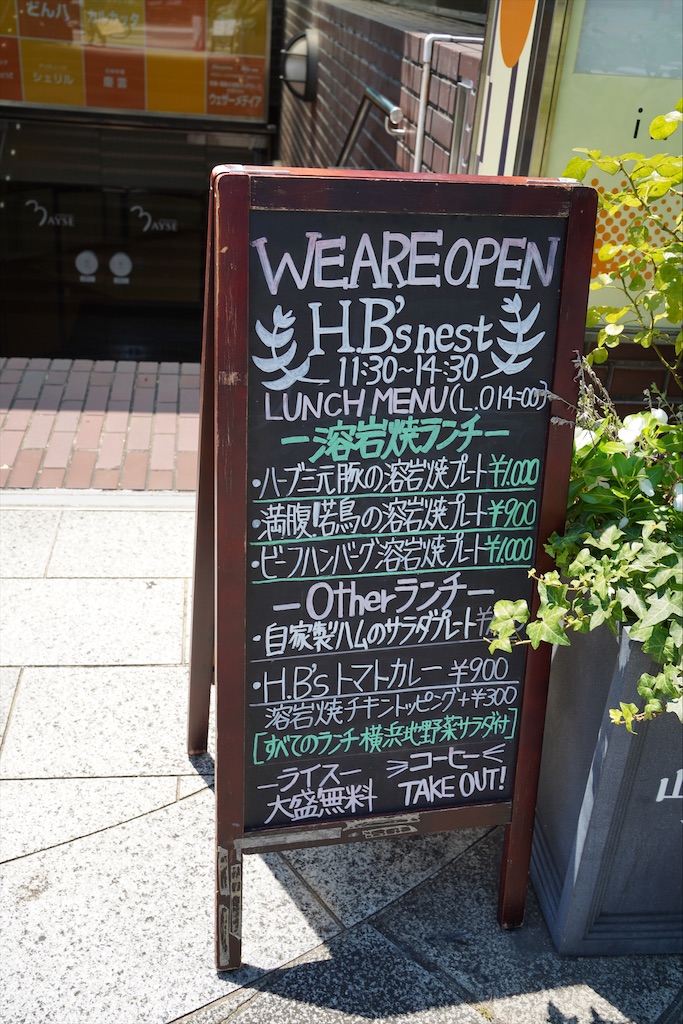 どんパ
カルカッタ
シェリル
ウェザーメディア
MAYSE
MAYSE
WE ARE OPEN
H.B's nest
11:30~14:30
LUNCH MENU (L.O 14:00)
ー溶岩焼ランチー
・ハーブ三元豚の溶岩焼プレート ¥1.000
・満腹!若鳥の溶岩焼プレート ¥900
・ビーフハンバーグ溶岩焼プレート ¥1.000
ーOtherランチー
・自家製ハムのサラダプレート ¥
・H.B'sトマトカレー ¥900
溶岩焼チキントッピング+¥300
[すべてのランチ横浜地野菜サラダ付]
ーライスー
大盛無料
コーヒー
TAKE OUT!
山